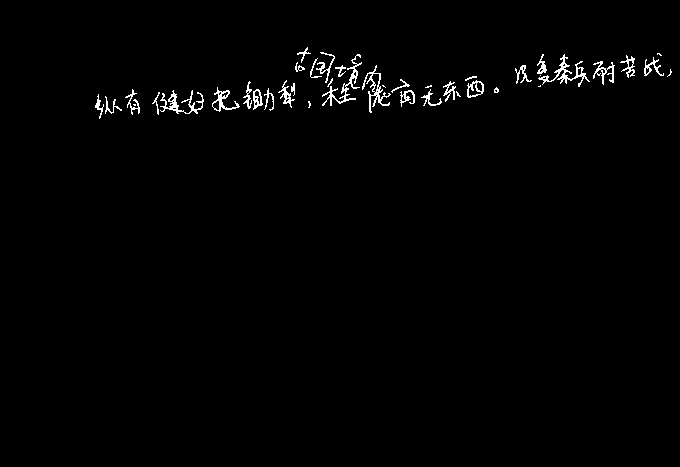 纵有健妇把锄犁，禾生陇亩无东西。况复秦兵耐苦战，